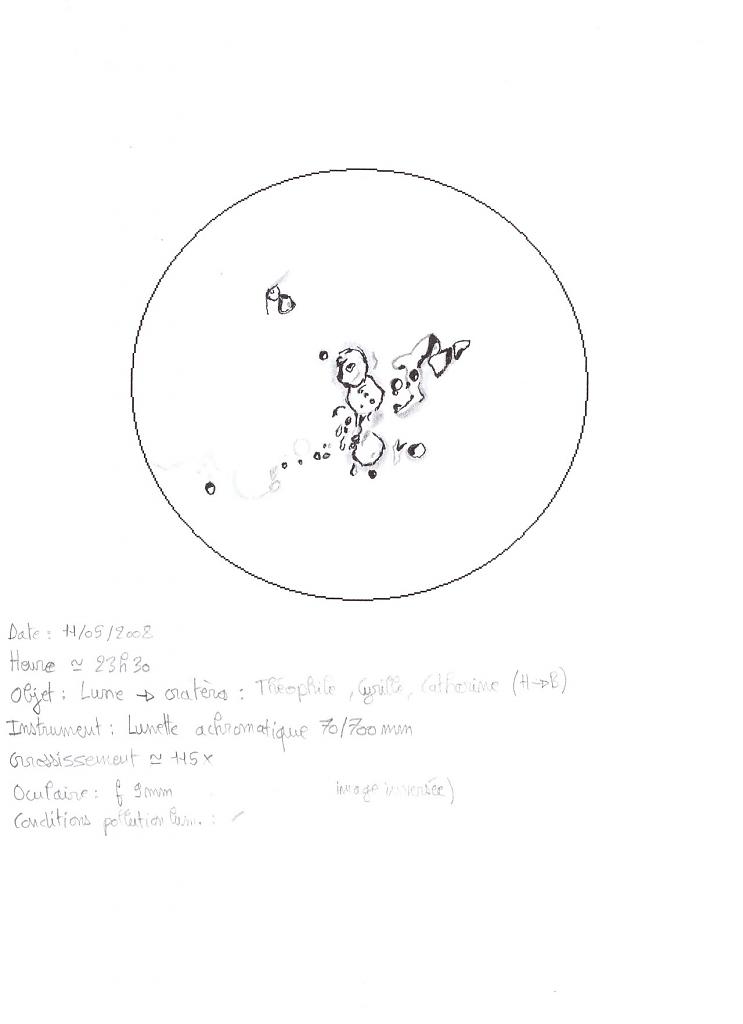 Date : 11/05/2008
Heure ≃ 23h30
Objet : Lune → cratères : Théophile, Cyrille, Catherine (H→B)
Instrument : Lunette achromatique 70/700 mm
Grossissement ≃ 115 x
Oculaire : f 9mm image inversée)
Conditions pollution lum. :